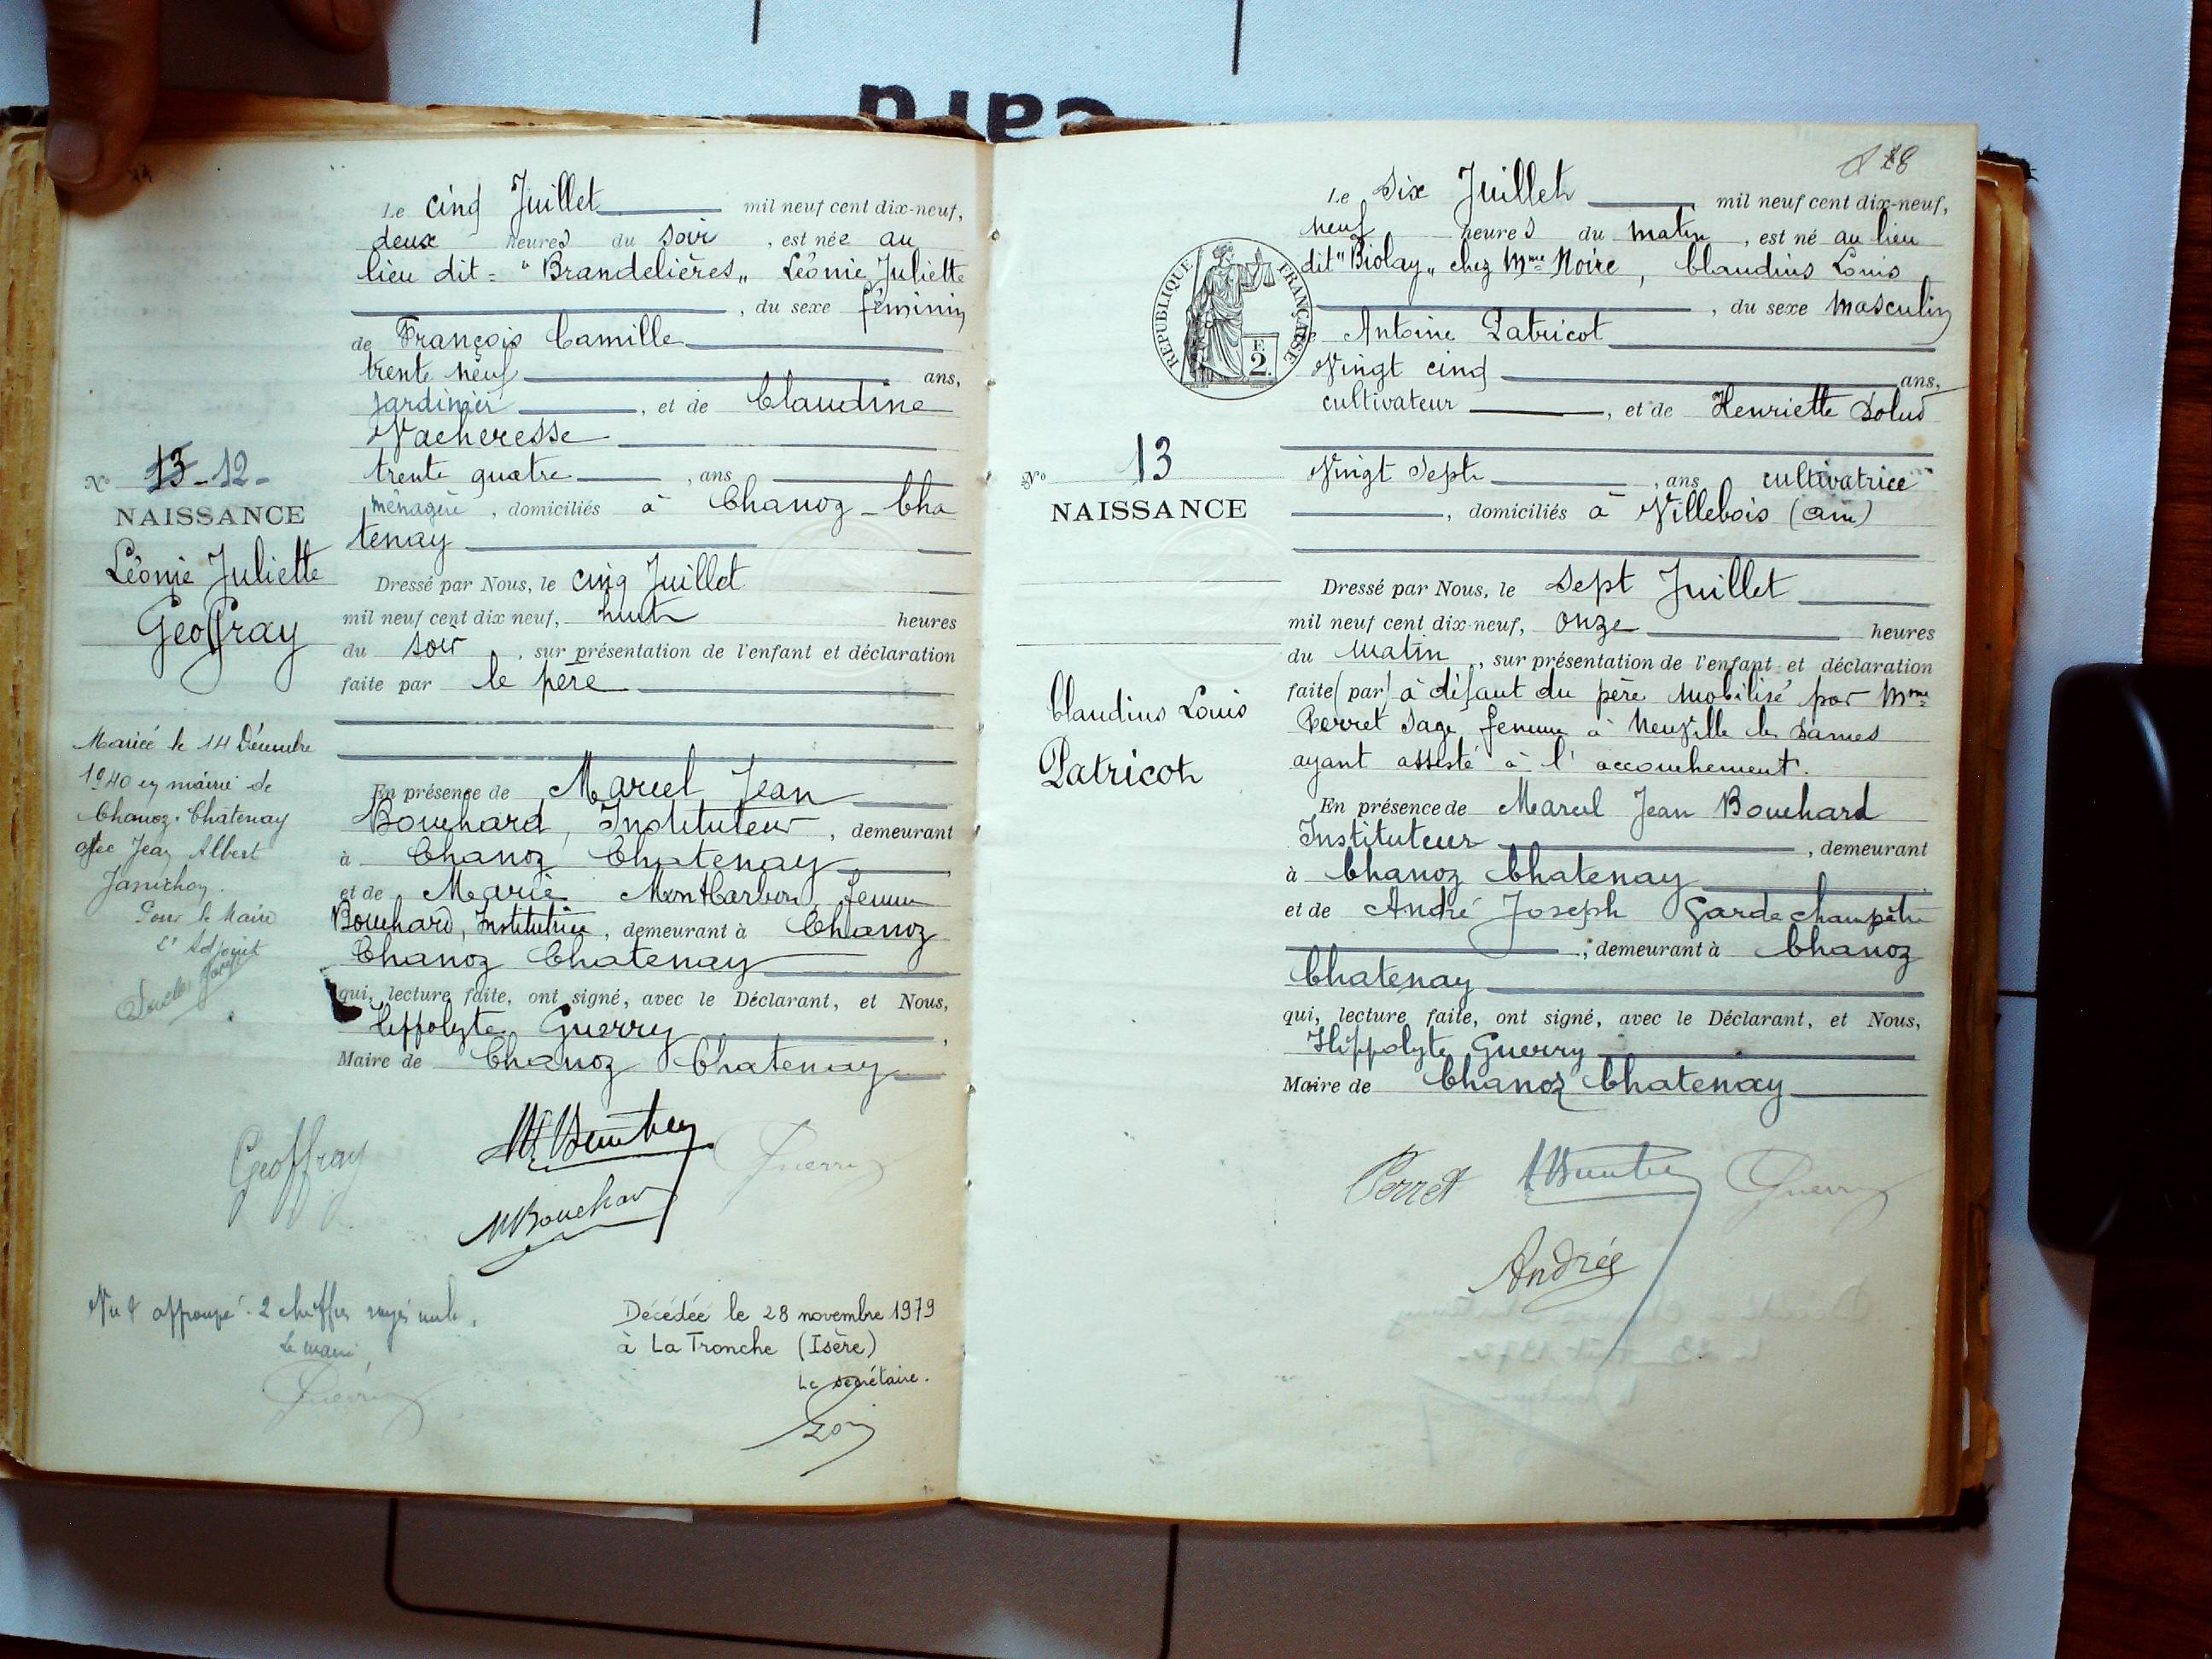 card
Le cinq Juillet mil neuf cent dix-neuf,
deux heures du soir, est née au
lieu dit = "Brandelières„ Léonie Juliette
, du sexe féminin
de François Camille
trente neuf ans,
jardinier, et de Claudine
Vacheresse
trente quatre, ans
ménagère, domiciliés à Chanoz-Cha
tenay
Dressé par Nous, le cinq Juillet
mil neuf cent dix neuf, huit heures
du soir, sur présentation de l'enfant et déclaration
faite par le père
En présence de Marcel Jean
Bouchard, Instituteur, demeurant
à Chanoz Chatenay
et de Marie Montbarbon, femme
Bouchard, Institutrice, demeurant à Chanoz
Chanoz Chatenay
qui, lecture faite, ont signé, avec le Déclarant, et Nous,
Hippolyte Guerry
Maire de Chanoz Chatenay
Nº 13-12-
NAISSANCE
Léonie Juliette
Geoffray
Mariée le 14 Décembre
1940 en mairie de
Chanoz-Chatenay
avec Jean Albert
Janichon.
Pour le Maire
L'Adjoint
Geoffray
MBouchard
Guerry
Vu & approuvé 2 chiffres rayés nuls.
Le maire,
Guerry
Décédée le 28 novembre 1979
à La Tronche (Isère)
Le secrétaire.
18
Le Six Juillet mil neuf cent dix-neuf,
neuf heures du matin, est né au lieu
dit "Biolay„ chez Mme Noire, Claudius Louis
, du sexe masculin
de Antoine Patricot
Vingt cinq ans,
cultivateur, et de Henriette Solus
Vingt Sept, ans cultivatrice
, domiciliés à Villebois (Ain)
Dressé par Nous, le Sept Juillet
mil neuf cent dix-neuf, onze heures
du matin, sur présentation de l'enfant et déclaration
faite (par) à défaut du père mobilisé par Mme
Perret Sage femme à Neuville les Dames
ayant assisté à l'accouchement.
En présence de Marcel Jean Bouchard
Instituteur, demeurant
à Chanoz Chatenay
et de André Joseph Garde champêtre
, demeurant à Chanoz
Chatenay
qui, lecture faite, ont signé, avec le Déclarant, et Nous,
Hippolyte Guerry
Maire de Chanoz Chatenay
RÉPUBLIQUE FRANÇAISE
F.
2.
Nº 13
NAISSANCE
Claudius Louis
Patricot
Perret
Guerry
André